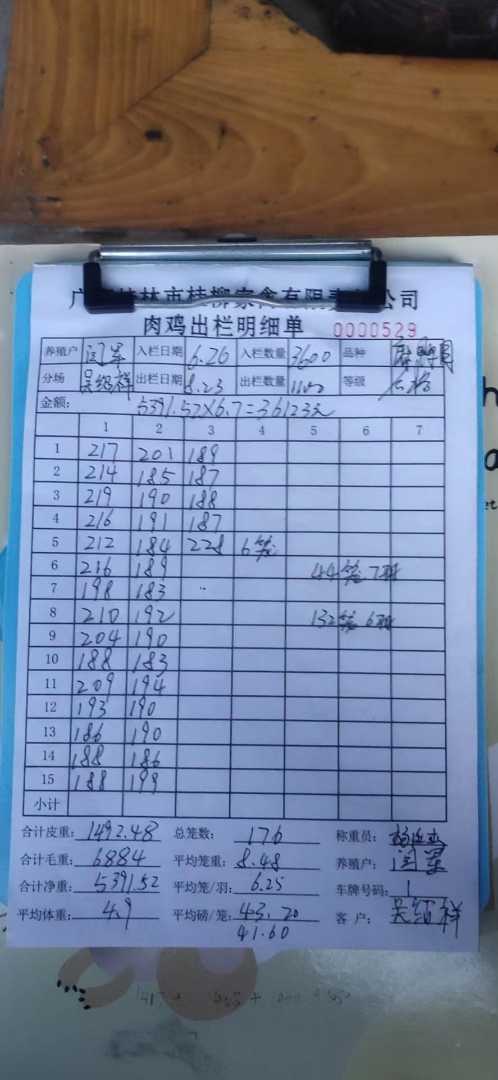 林市桂柳家禽有限责 公司
肉鸡出栏明细单 0000529
养殖户 闫军 入栏日期 6.26 入栏数量 3600 品种
分场 吴绍祥 出栏日期 8.23 出栏数量 等级
金额: 5391.52×6.7=36123元
1 2 3 4 5 6 7
1 217 201 189
2 214 185 187
3 219 190 188
4 216 191 187
5 212 184 228 6笼
6 216 189 44笼7只
7 198 183
8 210 192 132笼6只
9 204 190
10 188 183
11 209 194
12 193 190
13 186 190
14 188 186
15 188 199
小计
合计皮重: 1492.48 总笼数: 176 称重员:
合计毛重: 6884 平均笼重: 8.48 养殖户: 闫军
合计净重: 5391.52 平均笼/羽: 6.25 车牌号码: 1
平均体重: 4.9 平均磅/笼: 43.20 客 户: 吴绍祥
41.60